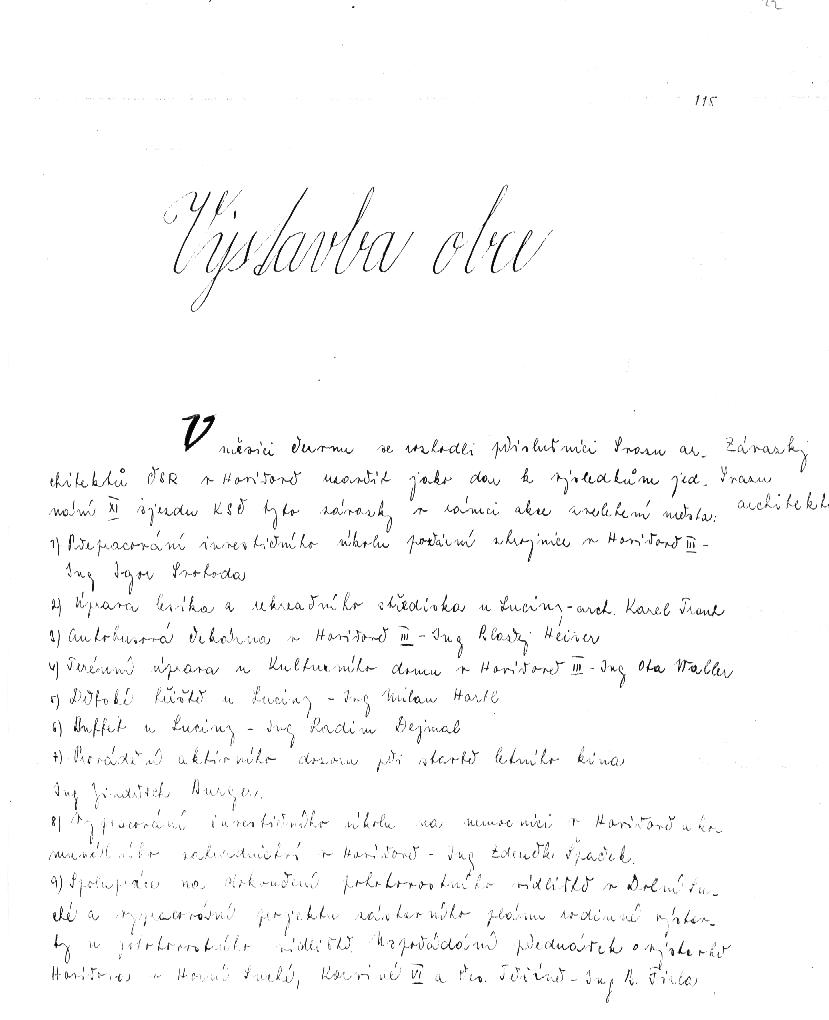 115
Výstavba obce
V měsíci červnu se rozhodli příslušníci Svazu ar-
Závazky
chitektů ČSR v Havířově uzavřít jako dar k výsledkům jed-
Svazu
nání XI sjezdu KSČ tyto závazky v rámci akce zvelebení města:
architektů
1) Přepracování investičního úkolu požární zbrojnice v Havířově III -
Ing Igor Svoboda
2) Úprava lesíka a rekreačního střediska u Luciny - arch. Karel Frank
3) Autobusová čekárna v Havířově III - Ing Blažej Heiser
4) Terénní úprava u Kulturního domu v Havířově III - Ing Ota Wabler
5) Dětské hřiště u Luciny - Ing Milan Hartl
6) Buffet u Luciny - Ing Radim Dejmal
7) Provádění aktivního dozoru při stavbě letního kina
Ing Jindřich Burger.
8) Vypracování investičního úkolu na nemocnici v Havířově a ko-
munálního zahradnictví v Havířově - Ing Zdeněk Špaček.
9) Spolupráce na dokončení pohotovostního sídliště v Dolní Su-
ché a vypracování projektu zástavního plánu rodinné výstav-
by u pohotovostního sídliště. Uspořádání přednášek o výstavbě
Havířova v Horní Suché, Karviné VI a Čes. Těšíně - Ing R. Firla